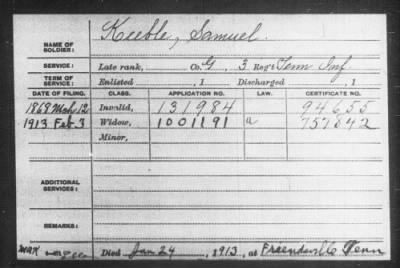 Keeble, Samuel.
NAME OF SOLDIER:
SERVICE: Late rank, Co. G, 3 Reg't Tenn Inf
TERM OF SERVICE: Enlisted , 1 Discharged , 1
DATE OF FILING. CLASS. APPLICATION NO. LAW. CERTIFICATE NO.
1868 Mch 12 Invalid, 131984 94655
1913 Feb 3 Widow, 1001191 a 757642
Minor,
ADDITIONAL SERVICES:
REMARKS:
Died Jan 24, 1913, at Tenn